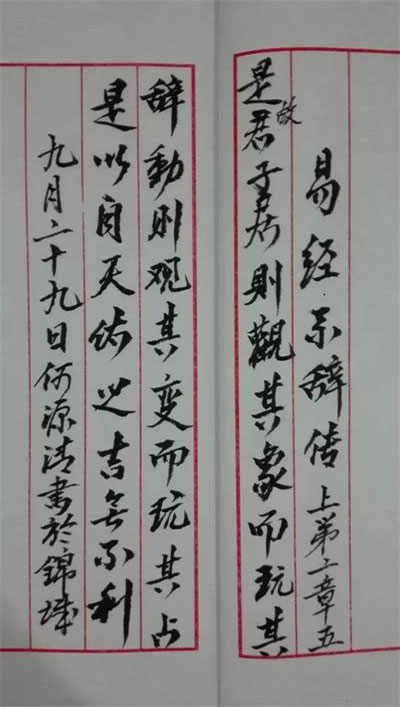 易经系辞传上第二章五
是故君子居則觀其象而玩其
辞動則观其变而玩其占
是以自天佑之吉无不利
九月二十九日何源清書於錦城